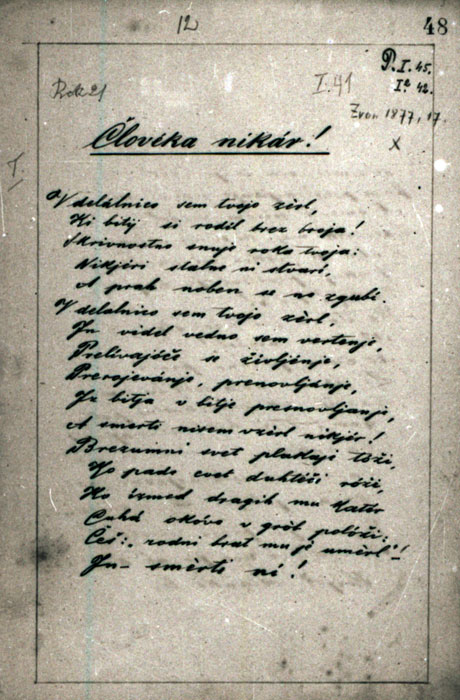 12
48
P. I. 45.
I² 42.
I. 41
Rok 21
Zvon 1877, 17.
X
I
Človéka nikár!
V delálnico sem tvojo zŕl,
Ki bitij si rodil brez broja!
Skrivnostno snuje roka tvoja:
Nikjéri stalno ni stvarí,
A prah noben se ne zgubi.
V delalnico sem tvojo zŕl,
In videl vedno sem vertenje,
Prelivajóče se življenje,
Prerojevánje, prenovljánje,
Iz bitja v bitje presnovljanje,
A smerti nisem vzŕl nikjér!
Brezumni svet plakaje tóži,
Ko pade cvet duhtéči róži,
Ko izmed dragih mu katér
Cahá v grób polóži;
Češ: rodni brat mu je umérl!
In – smérti ni!